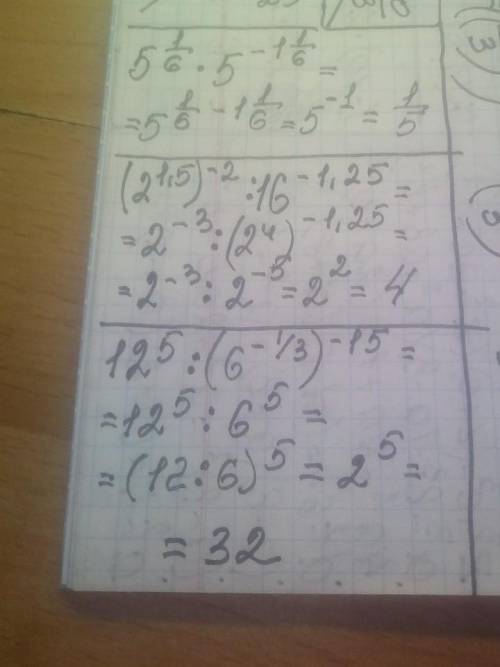 5^{1/6} · 5^{-1 1/6} =
= 5^{1/6 - 1 1/6} = 5^{-1} = 1/5
(2^{1,5})^{-2} : 16^{-1,25} =
= 2^{-3} : (2^4)^{-1,25} =
= 2^{-3} : 2^{-5} = 2^2 = 4
12^5 : (6^{-1/3})^{-15} =
= 12^5 : 6^5 =
= (12:6)^5 = 2^5 =
= 32